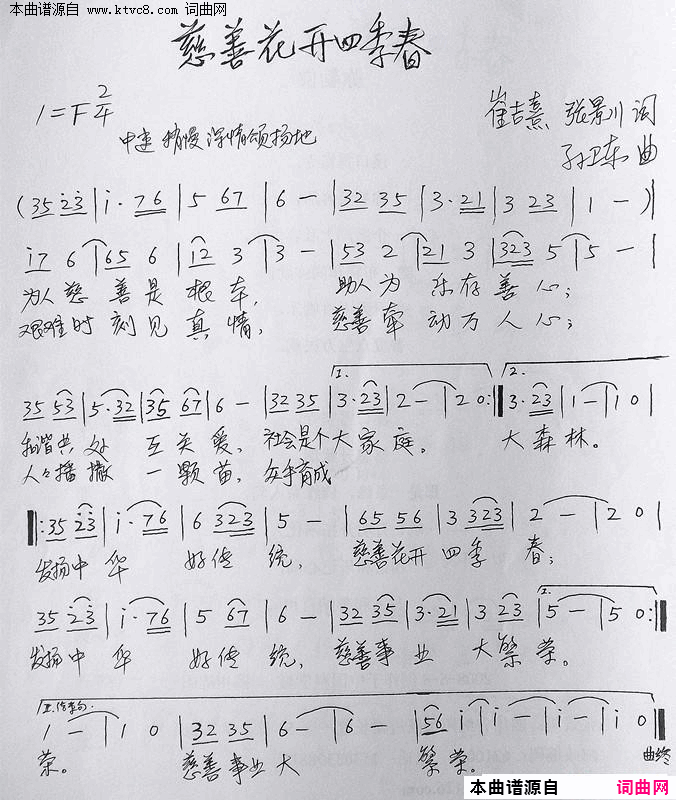 本曲谱源自
www.ktvc8.com 词曲网
慈善花开四季春
1=F 2/4
中速 稍慢 深情颂扬地
崔吉熹 张景川 词
孙卫东 曲
(35 23 | i· 76 | 5 67 | 6 - | 32 35 | 3· 21 | 3 23 | 1 - )|
i7 6 | 65 6 | i2 3 | 3 - | 53 2 | 21 3 | 323 5 | 5 - |
为人慈善是根本, 助人为乐存善心;
艰难时刻见真情, 慈善牵动万人心;
1. 2.
35 53 | 5· 32 | 35 67 | 6 - | 32 35 | 3· 23 | 2 - | 2 0 :‖ 3· 23 | 1 - | 1 0 |
和谐共处 互关爱, 社会是个大家庭。 大森林。
人人播撒 一颗苗, 众手育成
‖: 35 23 | i· 76 | 6 323 | 5 - | 65 56 | 3 323 | 2 - | 2 0 |
发扬中华 好传统, 慈善花开四季春;
1.
35 23 | i· 76 | 5 67 | 6 - | 32 35 | 3· 21 | 3 23 | 5 - | 5 0 :‖
发扬中华 好传统, 慈善事业 大繁荣。
2.结束句
1 - | 1 0 | 32 35 | 6 - | 6 - | 56 i | i - | i - | i 0 ‖
荣。 慈善事业大 繁荣。 曲终
本曲谱源自 词曲网